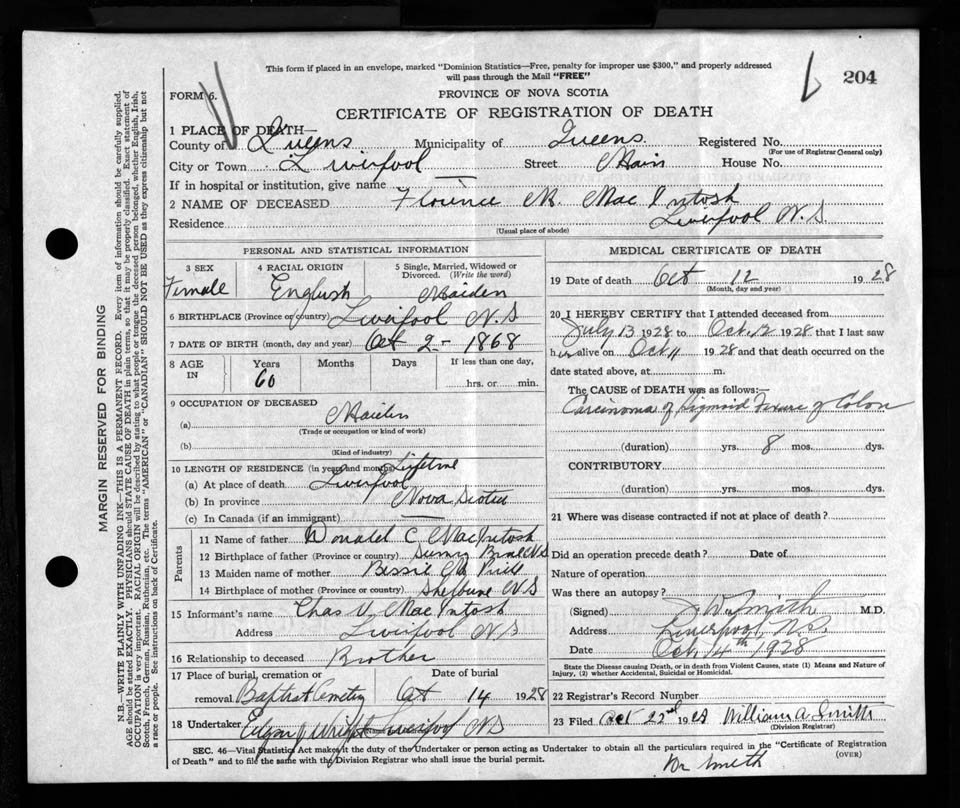 This form if placed in an envelope, marked "Dominion Statistics—Free, penalty for improper use $300," and properly addressed
will pass through the Mail "FREE"
204
FORM 6.
PROVINCE OF NOVA SCOTIA
CERTIFICATE OF REGISTRATION OF DEATH
1 PLACE OF DEATH—
County of Queens Municipality of Queens Registered No.
(For use of Registrar General only)
City or Town Liverpool Street Main House No.
If in hospital or institution, give name
2 NAME OF DECEASED Florence M. MacIntosh
Residence Liverpool N.S.
(Usual place of abode)
PERSONAL AND STATISTICAL INFORMATION
3 SEX 4 RACIAL ORIGIN 5 Single, Married, Widowed or
Divorced. (Write the word)
Female English Maiden
6 BIRTHPLACE (Province or country) Liverpool N.S
7 DATE OF BIRTH (month, day and year) Oct 2 - 1868
8 AGE IN Years Months Days If less than one day,
60 hrs. or min.
9 OCCUPATION OF DECEASED
(a) Maiden
(Trade or occupation or kind of work)
(b)
(Kind of industry)
10 LENGTH OF RESIDENCE (in years and months) Lifetime
(a) At place of death Liverpool
(b) In province Nova Scotia
(c) In Canada (if an immigrant)
Parents
11 Name of father Donald C MacIntosh
12 Birthplace of father (Province or country) NS
13 Maiden name of mother Bessie
14 Birthplace of mother (Province or country) Shelburne N.S
15 Informant's name Chas V. MacIntosh
Address Liverpool NS
16 Relationship to deceased Brother
17 Place of burial, cremation or Date of burial
removal Baptist Cemetery Oct 14 1928
18 Undertaker Wright Liverpool NS
MEDICAL CERTIFICATE OF DEATH
19 Date of death Oct 12 1928
(Month, day and year)
20 I HEREBY CERTIFY that I attended deceased from
July 13 1928 to Oct. 12 1928 that I last saw
her alive on Oct 11 1928 and that death occurred on the
date stated above, at m.
The CAUSE of DEATH was as follows:—
Carcinoma of Sigmoid Flexure of Colon
(duration) yrs. 8 mos. dys.
CONTRIBUTORY
(duration) yrs. mos. dys.
21 Where was disease contracted if not at place of death?
Did an operation precede death? Date of
Nature of operation
Was there an autopsy?
(Signed) Smith M.D.
Address Liverpool, N.S.
Date Oct, 14th 1928
State the Disease causing Death, or in death from Violent Causes, state (1) Means and Nature of
Injury, (2) whether Accidental, Suicidal or Homicidal.
22 Registrar's Record Number
23 Filed Oct 22nd 1928 William A. Smith
(Division Registrar)
SEC. 46—Vital Statistics Act makes it the duty of the Undertaker or person acting as Undertaker to obtain all the particulars required in the "Certificate of Registration
of Death" and to file the same with the Division Registrar who shall issue the burial permit.
(OVER)
Dr Smith
MARGIN RESERVED FOR BINDING
N.B.—WRITE PLAINLY WITH UNFADING INK—THIS IS A PERMANENT RECORD. Every item of information should be carefully supplied.
AGE should be stated EXACTLY. PHYSICIANS should STATE CAUSE OF DEATH in plain terms, so that it may be properly classified. Exact statement of
OCCUPATION is very important. RACIAL ORIGIN will be described by stating to what people or tongue the deceased person belonged, whether English, Irish,
Scotch, French, German, Russian, Ruthenian, etc. The terms "AMERICAN" or "CANADIAN" SHOULD NOT BE USED as they express citizenship but not
a race or people. See instructions on back of Certificate.